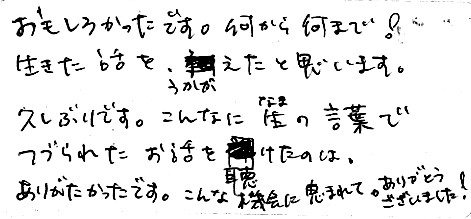 おもしろかったです。何から何まで！
生きた話を、うかがえたと思います。
久しぶりです。こんなに生の言葉で
つづられたお話を聴けたのは、
ありがたかったです。こんな機会に恵まれて。ありがとうございました！